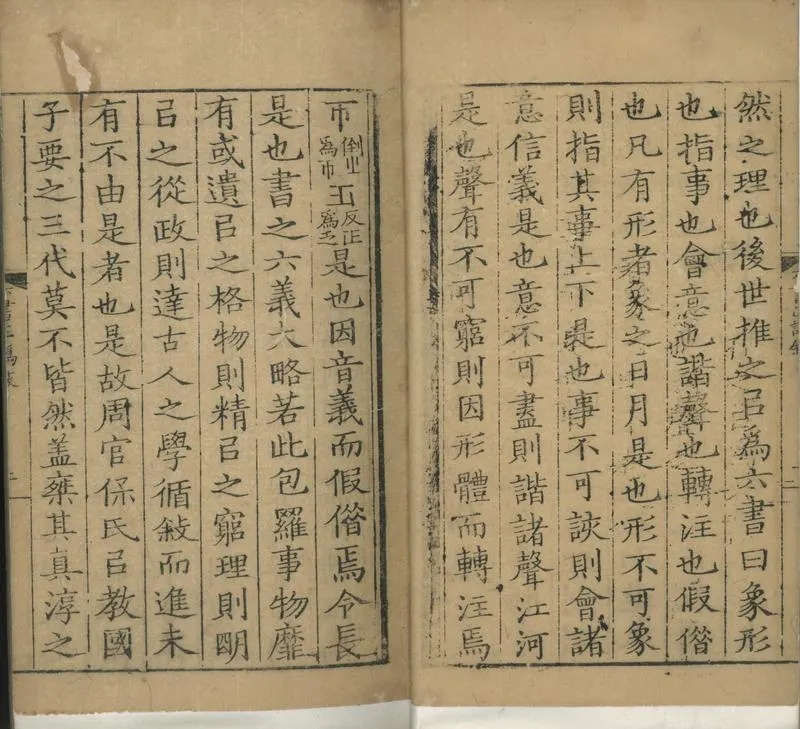 然之理也後世推之㠯為六書曰象形
也指事也會意也諧聲也轉注也假借
也凡有形者象之日月是也形不可象
則指其事上下是也事不可該則會諸
意信義是也意不可盡則諧諸聲江河
是也聲有不可窮則因形體而轉注焉
帀倒㞢為帀𤴓反正為乏是也因音義而假借焉令長
是也書之六義大略若此包羅事物靡
有或遺㠯之格物則精㠯之窮理則明
㠯之從政則達古人之學循敍而進未
有不由是者也是故周官保氏㠯教國
子要之三代莫不皆然盖廱其真淳之